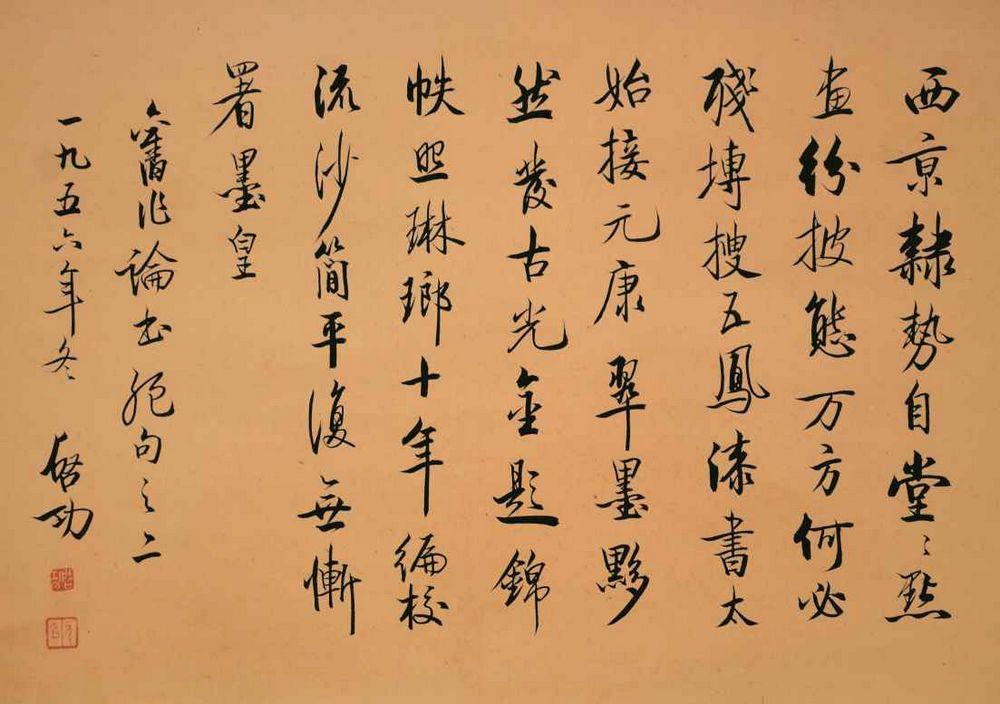 西京隸勢自堂堂點
畫紛披態万方何必
殘塼搜五鳳漆書太
始接元康翠墨黟
然發古光金題錦
帙照琳瑯十年編校
流沙簡平復無慚
署墨皇
舊作論書絕句之二
一九五六年冬
啓功